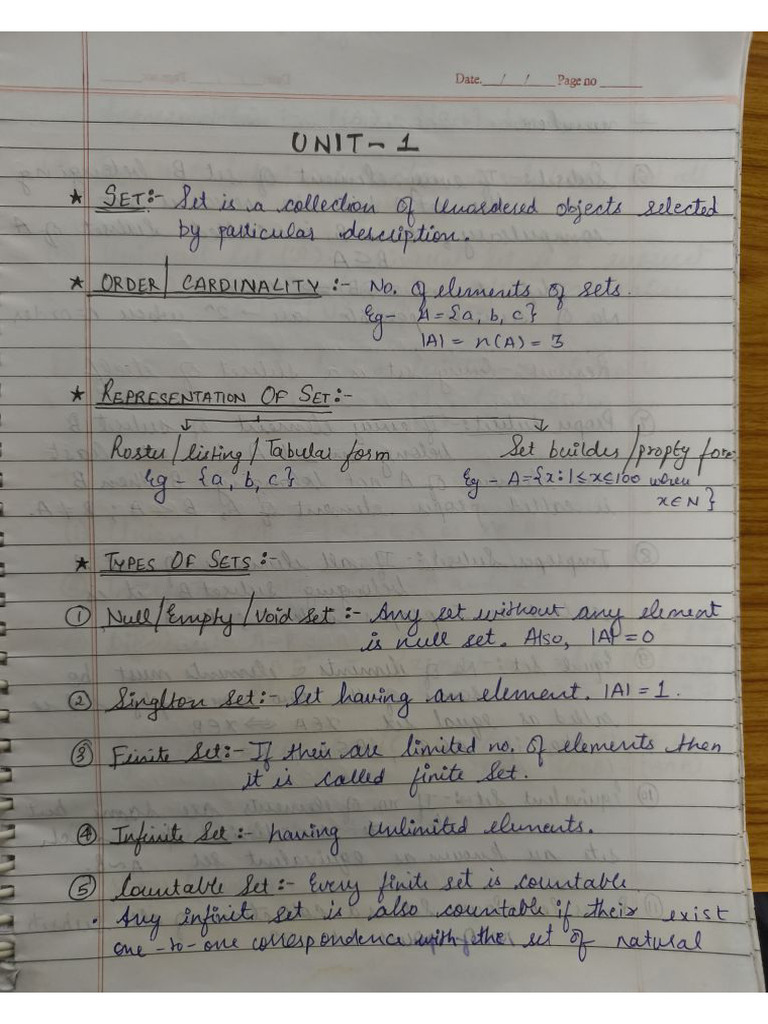 Date. / / Page no
UNIT-1
★ SET:- Set is a collection of unordered objects selected
by particular description.
★ ORDER/ CARDINALITY:- No. of elements of sets.
Eg- A={a, b, c}
|A| = n(A) = 3
★ REPRESENTATION OF SET:-
Roster/listing/Tabular form Set builder/propty form
Eg - {a, b, c} Eg - A={x:1≤x≤100 when
x∈N}
★ TYPES OF SETS:-
① Null/Empty/Void Set:- Any set without any element
is null set. Also, |A|=0
② Singlton Set:- Set having an element. |A|=1.
③ Finite Set:- If their are limited no. of elements then
it is called finite Set.
④ Infinite Set:- having Unlimited elements.
⑤ Countable Set:- Every finite set is countable
• Any infinite set is also countable if their exist
one-to-one correspondence with the set of natural